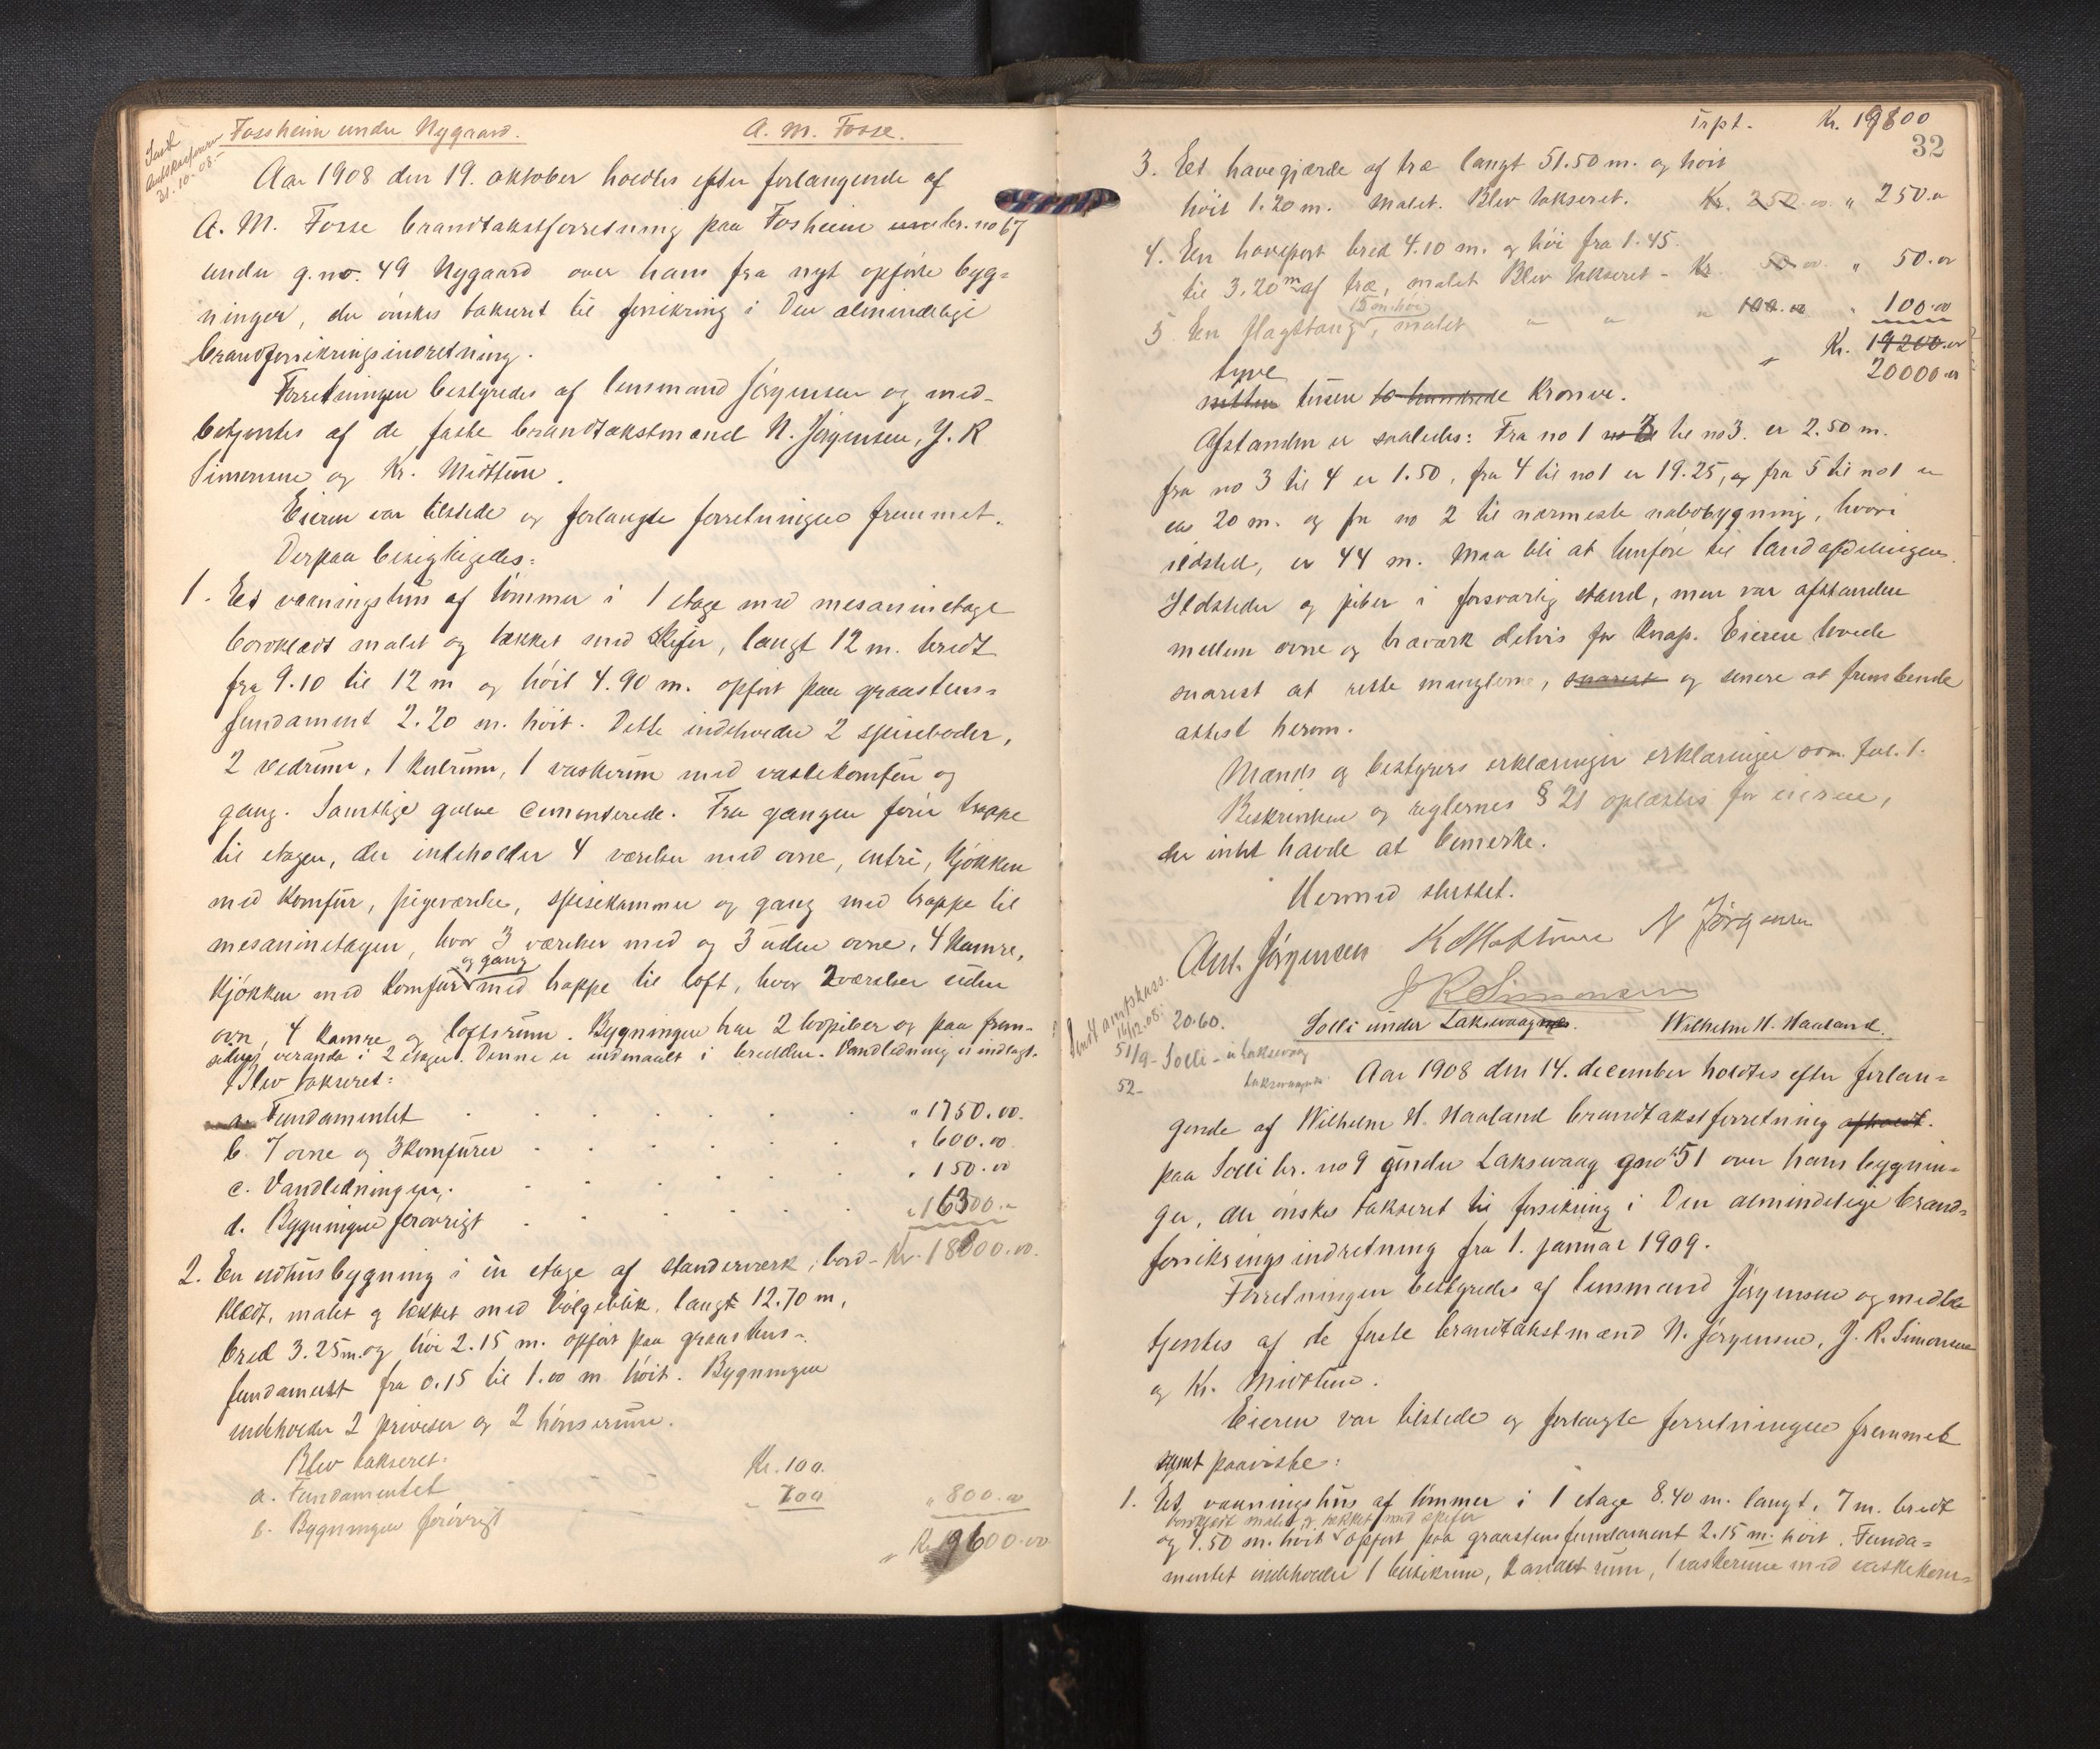 Sendt
Amtskassereren
21.10.08.
Fossheim under Nygaard. A. M. Fosse.
Aar 1908 den 19. oktober holdtes efter forlangende af
A. M. Fosse brandtakstforretning paa Fosheim br. no 67
under g. no. 49 Nygaard over hans fra nyt opførte byg-
ninger, der ønskes takseret til forsikring i Den almindelige
brandforsikringsindretning.
Forretningen bestyredes af lensmand Jørgensen og med-
betjentes af de faste brandtakstmænd N. Jørgensen, J. R
Simonsen og Kr. Midttun.
Eieren var tilstede og forlangte forretningen fremmet.
Derpaa besigtigedes:
1. Et vaaningshus af tømmer i 1 etage med mesaninetage
bordklædt malet og tækket med skifer, langt 12 m. bredt
fra 9.10 til 12 m og høit 4.90 m. opført paa graastens-
fundament 2.20 m. høit. Dette indeholder 2 spiseboder,
2 vedrum, 1 kulrum, 1 vaskerum med vaskekomfur og
gang. Samtlige gulve cementerede. Fra gangen fører trappe
til etagen, der indeholder 4 værelser med ovne, entré, kjøkken
med komfur, pigeværelse, spisekammer og gang med trappe til
mesaninetagen, hvor 3 værelser med og 3 uden ovne, 4 kamre,
og gang
kjøkken med komfur med trappe til loft, hvor 2 værelser uden
ovn, 4 kamre og loftsrum. Bygningen har 2 løbpiber og paa frem-
siden veranda i 2 etager. Denne er indmaalt i bredden. Vandledning er indlagt.
Blev takseret:
a. Fundamentet " 1750.00.
b. 7 ovne og 3 komfurer " 600.00
c. Vandledningen " 150.00
d. Bygningen forøvrigt " 16300.-
2. En udhusbygning i en etage af standerværk, bord- Kr. 18800.00.
klædt, malet og tækket med bølgeblik, langt 12.70 m,
bred 3.25 m. og høi 2.15 m. opført paa graastens-
fundament fra 0.15 til 1.00 m høit. Bygningen
indeholder 2 priveter og 2 hønserum.
Blev takseret:
a. Fundamentet Kr. 100.
b. Bygningen forøvrigt " 700 " 800.00
Kr. 19600.00
Trpt. Kr. 19600
32
3. Et havegjærde af træ langt 51.50 m. og høit
høit 1.20 m. malet. Blev takseret. Kr. 250.00 " 250.00
4. En haveport bred 4.10 m. og høi fra 1.45
til 3.20 m af træ, malet Blev takseret - Kr. 50.00 " 50.00
15 m. høi
5 En flagstang, malet " " " 100.00 " 100.00
Kr. 19200.00
tyve " 20000.00
nitten tusen to hundrede Kroner.
Afstanden er saaledes: Fra no 1 til no 3. er 2.50 m.
fra no 3 til 4 er 1.50, fra 4 til no 1 er 19.25, og fra 5 til no 1 er
ca 20 m. og fra no 2 til nærmeste nabobygning, hvori
ildsted, er 44 m. Maa bli at henføre til landafdelingen.
Ildsteder og piber i forsvarlig stand, men var afstanden
mellem ovne og træværk delvis for knap. Eieren lovede
snarest at rette manglerne, snarest og senere at frembende
attest herom.
Mænds og bestyrers erklæringer erklæringer som fol. 1.
Beskrivelsen og reglernes § 21 oplæstes for eieren,
der intet havde at bemerke.
Hermed sluttet.
Ant. Jørgensen K Midttun N Jørgensen
J R Simonsen
Sendt amtskass.
16/12.08. 2060.
51/9 - Solli - u Laksevaag
52 -
Solli under Laksevaag. Wilhelm H. Haaland.
Aar 1908 den 14. december holdtes efter forlan-
gende af Wilhelm H. Haaland brandtakstforretning afholdt.
paa Solli br. no 9 under Laksevaag gno 51 over hans bygnin-
ger, der ønskes takseret til forsikring i Den almindelige brand-
forsikringsindretning fra 1. januar 1909.
Forretningen bestyredes af lensmand Jørgensen og medbe
tjentes af de faste brandtakstmænd N. Jørgensen, J. R. Simonsen
og Kr. Midttun.
Eieren var tilstede og forlangte forretningen fremmet
samt paaviste:
1. Et vaaningshus af tømmer i 1 etage 8.40 m. langt, 7 m. bredt
bordklædt malet og tækket med skifer
og 7.50 m. høit opført paa graastensfundament 2.15 m. høit. Funda-
mentet indeholder 1 butikrum, 1 vaskerum med vaskekom-